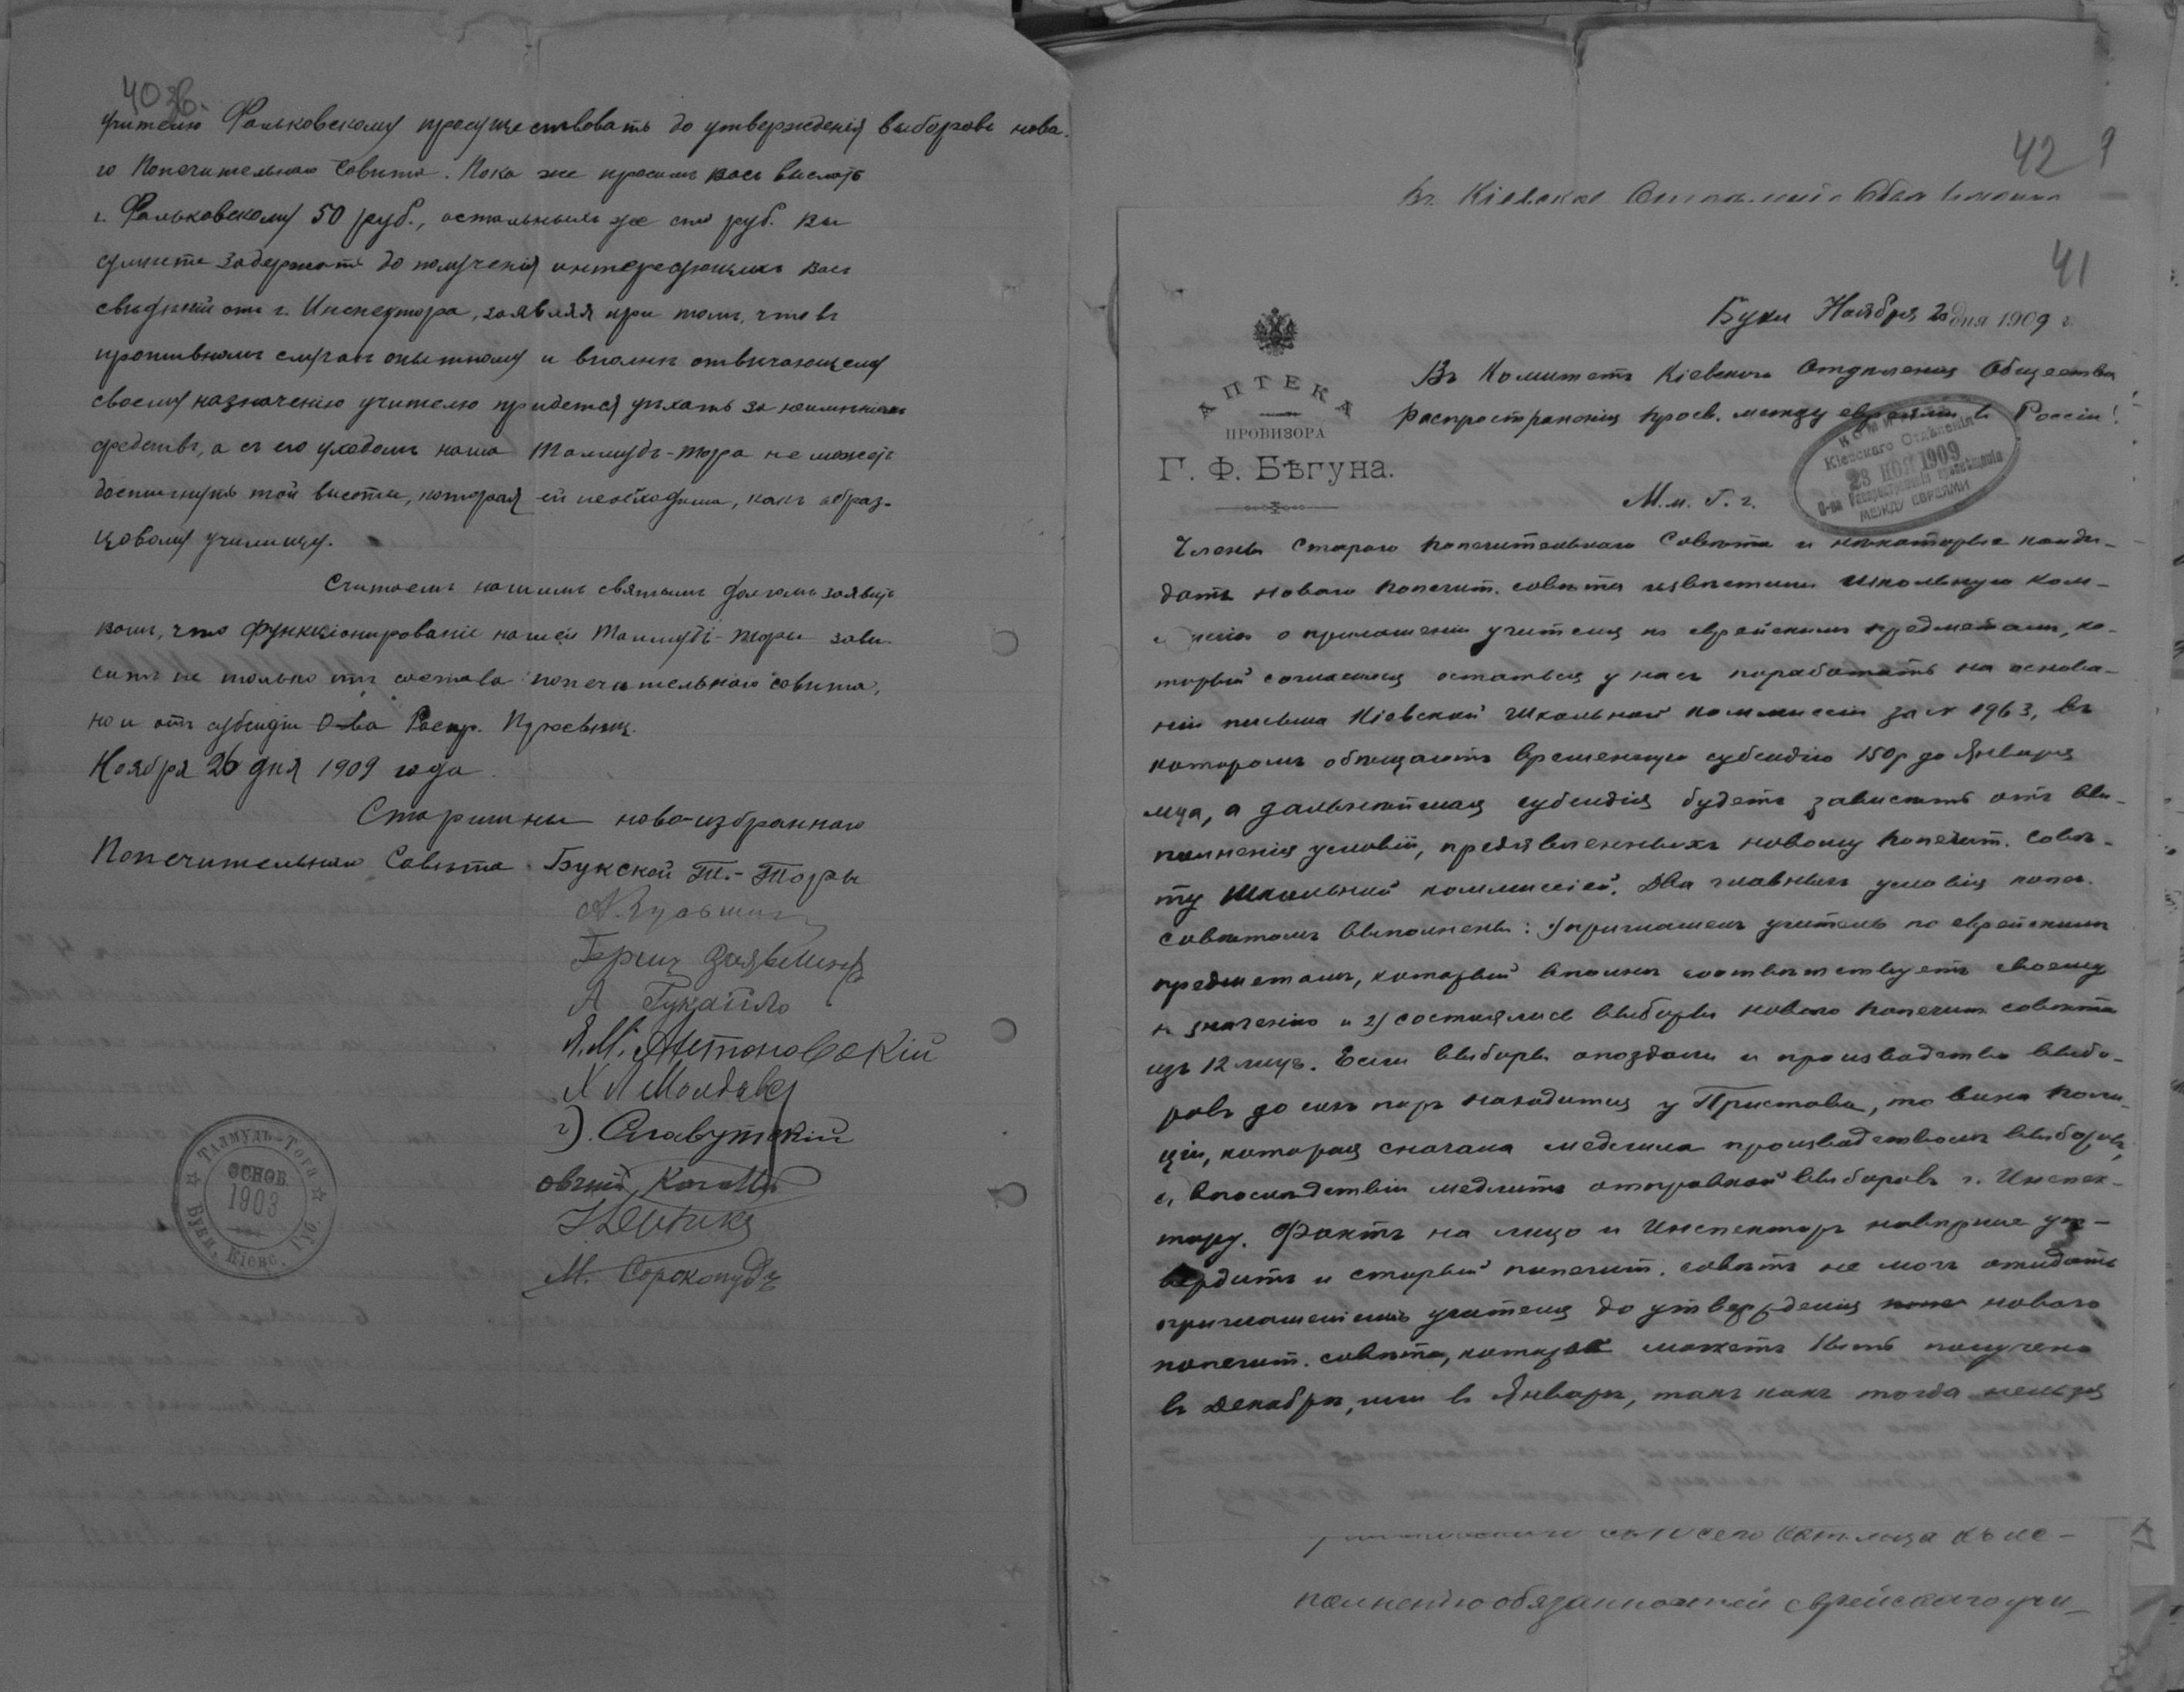 40 зв.
учителю Фальковскому просуществовать до утвержденія выборовъ нова-
го Попечительнаго Совѣта. Пока же просимъ васъ выслать
г. Фальковскому 50 руб., остальныхъ же сто руб. вы
задержать до полученія интересующихъ васъ
свѣдѣній отъ г. Инспектора, заявляя при томъ, что въ
противномъ случаѣ опытному и вполнѣ отвѣчающему
своему назначенію учителю придется уѣхать за неимѣніемъ
средствъ, а съ его уходомъ наша Талмудъ-тора не можетъ
достигнуть той высоты, которая ей необходима, какъ образ-
цовому училищу.
Считаемъ нашимъ святымъ долгомъ заявить
вамъ, что функкціонированіе нашей Талмудъ-торы зави-
ситъ не только отъ состава попечительнаго совѣта,
но и отъ субсидіи О-ва Распр. Просвѣщ.
Ноября 26 дня 1909 года
Старшины ново-избраннаго
Попечительнаго Совѣта Букской Т.-Торы
Герш
А
Я.М. Антоновскій
Х Л Молдавс
Славутскій
М. Сорокопудъ
ТАЛМУДЪ-ТОРА
ОСНОВ.
1903
БУКИ, КІЕВС. ГУБ.
42
Въ Кіевское
41
Буки Ноября 20 дня 1909 г.
АПТЕКА
ПРОВИЗОРА
Г. Ф. БѢГУНА.
Въ Комитетъ Кіевскаго Отдѣленія Общества
Распространенія просв. между евреями въ Россіи!
КОМИТЕТ
Кіевскаго Отдѣленія
23 НОЯ 1909
О-ва Распространенія Просвѣщенія
МЕЖДУ ЕВРЕЯМИ
М.м. Г. г.
Члены Стараго попечительнаго Совѣта и нѣкоторые канди-
даты новаго попечит. совѣта извѣстили школьную ком-
о приглашеніи учителя по еврейскимъ предметамъ, ко-
торый согласился остаться у насъ поработать на основа-
ніи письма Кіевской Школьной коммиссіи за № 1963, въ
которомъ обѣщаютъ временную субсидію 150р до Января
мца, а дальнѣйшая субсидія будетъ зависить отъ вы-
полненія условій, предъявленныхъ новому попечит. Совѣ-
ту Школьной коммиссіей. Два главныхъ условія попеч.
совѣтомъ выполнены: 1) приглашенъ учитель по еврейскимъ
предметамъ, который вполнѣ соотвѣтствуетъ своему
значенію и 2) состоялись выборы новаго попечит. совѣта
изъ 12 лицъ. Если выборы опоздали и производство выбо-
ровъ до сихъ поръ находится у Пристава, то вина поли-
ціи, которая сначала медлила производствомъ выборовъ,
а впослѣдствіи медлитъ отправкой выборовъ г. Инспек-
тору. Фактъ на лицо и Инспекторъ навѣрное ут-
вердитъ и старый попечит. совѣтъ не могъ ожидать
приглашеніемъ учителя до утвержденія новаго
попечит. совѣта, которое можетъ быть получено
въ Декабрѣ, или въ Январѣ, такъ какъ тогда нельзя
сего мѣсяца къ ис-
полненію обязанностей еврейскаго учи-